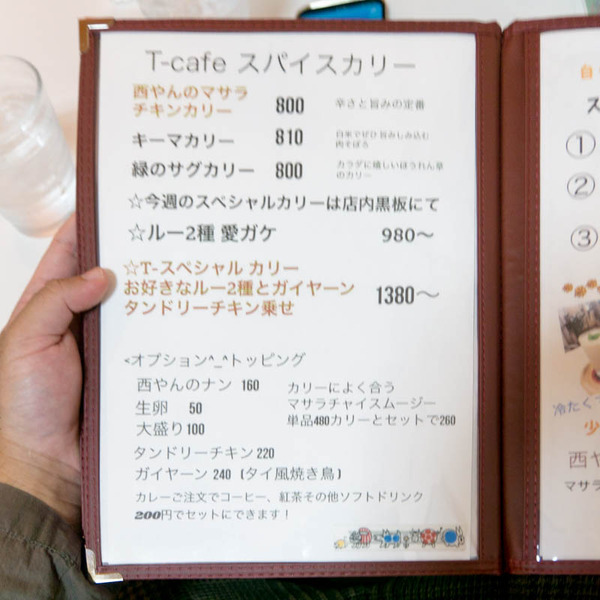 T-cafe スパイスカリー
西やんのマサラ
チキンカリー 800 辛さと旨みの定番
キーマカリー 810 白米でぜひ旨みしみ込む
肉そぼろ
緑のサグカリー 800 カラダに嬉しいほうれん草
のカリー
☆今週のスペシャルカリーは店内黒板にて
☆ルー2種 愛ガケ 980〜
☆T-スペシャル カリー
お好きなルー2種とガイヤーン
タンドリーチキン乗せ 1380〜
<オプション^_^トッピング
西やんのナン 160
生卵 50
大盛り100
カリーによく合う
マサラチャイスムージー
単品480カリーとセットで260
タンドリーチキン220
ガイヤーン 240 (タイ風焼き鳥)
カレーご注文でコーヒー、紅茶その他ソフトドリンク
200円でセットにできます！
自
ス
①
②
③
冷たく
少
西や
マサラ